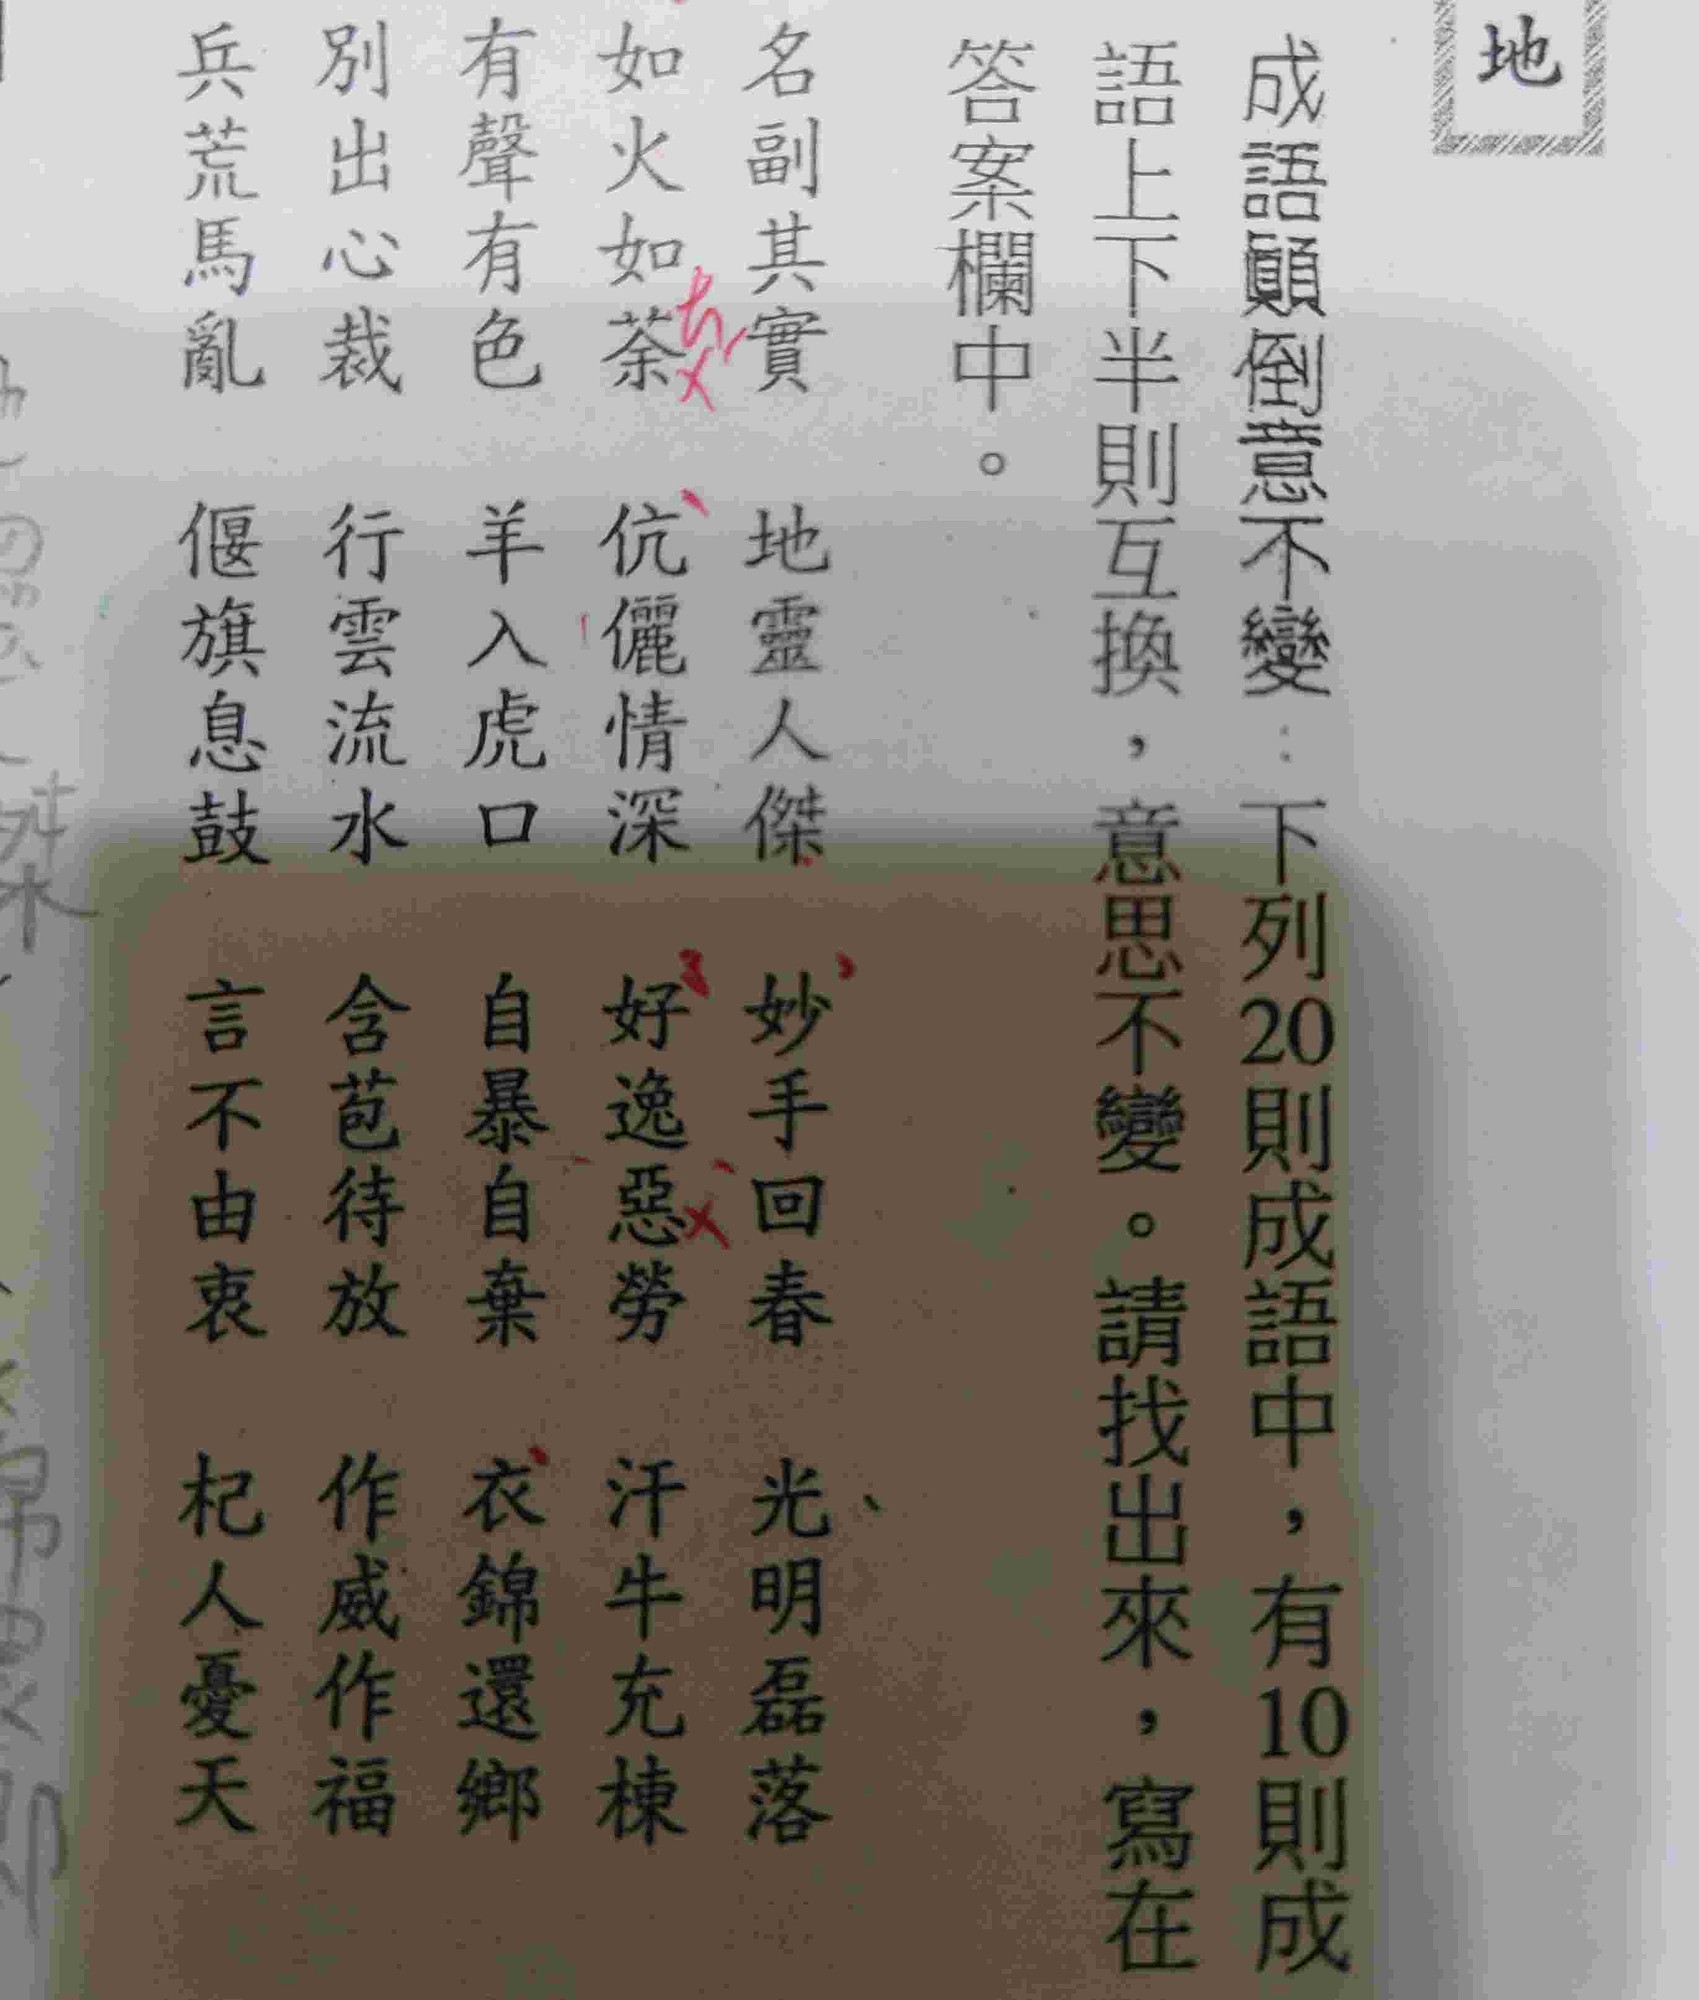 地
成語顚倒意不變：下列20則成語中，有10則成
語上下半則互換，意思不變。請找出來，寫在
答案欄中。
名副其實 地靈人傑 妙手回春 光明磊落
如火如荼 伉儷情深 好逸惡勞 汗牛充棟
有聲有色 羊入虎口 自暴自棄 衣錦還鄉
別出心裁 行雲流水 含苞待放 作威作福
兵荒馬亂 偃旗息鼓 言不由衷 杞人憂天